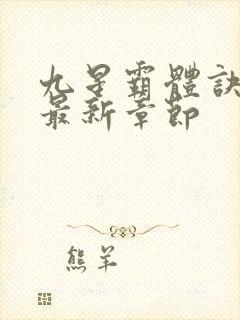 九星霸體訣
最新章節
熊羊